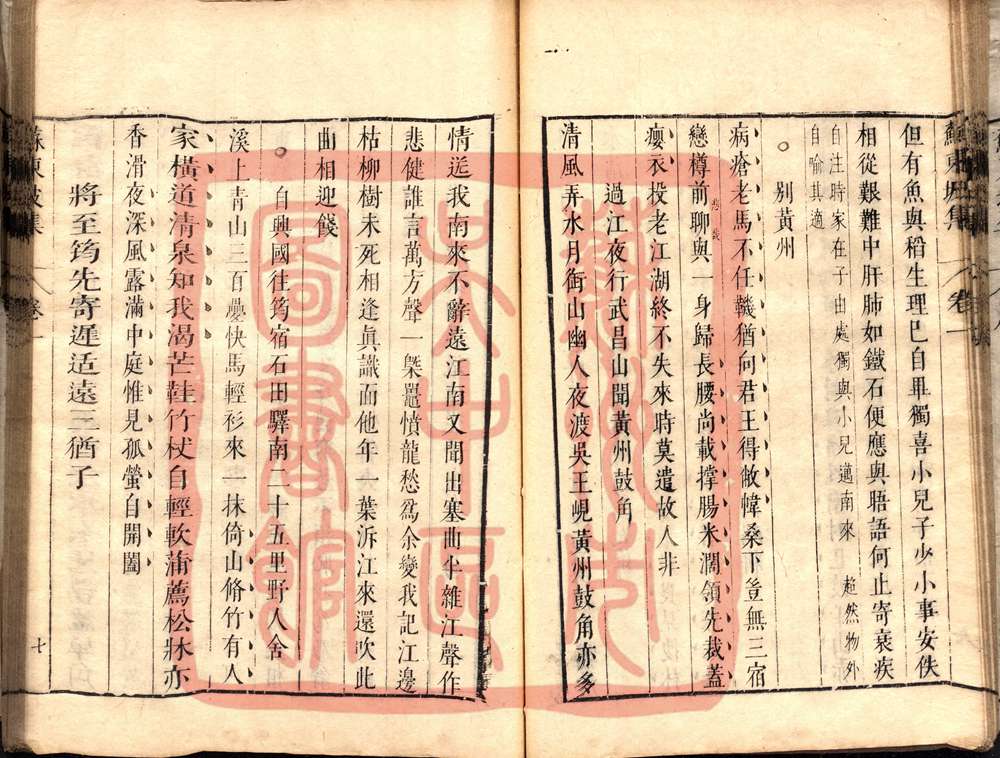 蘇東坡集
卷一
但有魚與稻生理已自畢獨喜小兒子少小事安佚
相從艱難中肝肺如鐵石便應與晤語何止寄衰疾
自注時家在子由處獨與小兒邁南來
超然物外
自喻其適
別黃州
病瘡老馬不任鞿猶向君王得敝幃桑下豈無三宿
戀樽前聊與一身歸長腰尚載撐腸米濶領先裁蓋
癭衣投老江湖終不失來時莫遣故人非
過江夜行武昌山聞黃州鼓角
清風弄水月銜山幽人夜渡吳王峴黃州鼓角亦多
情送我南來不辭遠江南又聞出塞曲半雜江聲作
悲健誰言萬方聲一槩鼉憤龍愁爲余變我記江邊
枯柳樹未死相逢眞識面他年一葉泝江來還吹此
曲相迎餞
自興國往筠宿石田驛南二十五里野人舍
溪上青山三百疊快馬輕衫來一抹倚山脩竹有人
家橫道清泉知我渴芒鞋竹杖自輕軟蒲薦松牀亦
香滑夜深風露滿中庭惟見孤螢自開闔
將至筠先寄遲适遠三猶子
蘇東坡集
卷一
七
蘭州市
公共中區
圖書館